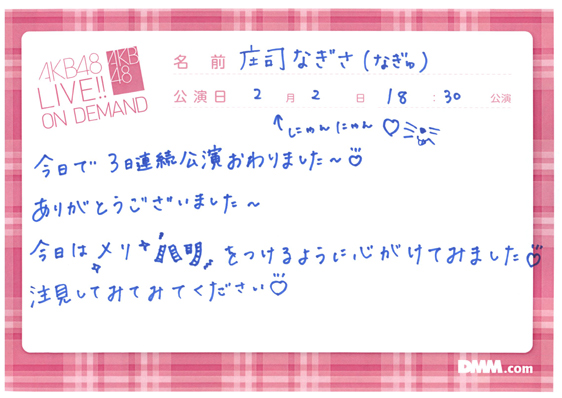 AKB48
LIVE!!
ON DEMAND
AKB
48
名前 庄司なぎさ(なぎゅ)
公演日 2月2日 18:30 公演
↑にゃんにゃん♡
今日で3日連続公演おわりました〜♡
ありがとうございました〜
今日はメリ
をつけるように心がけてみました♡
注見してみてみてください♡
DMM.com